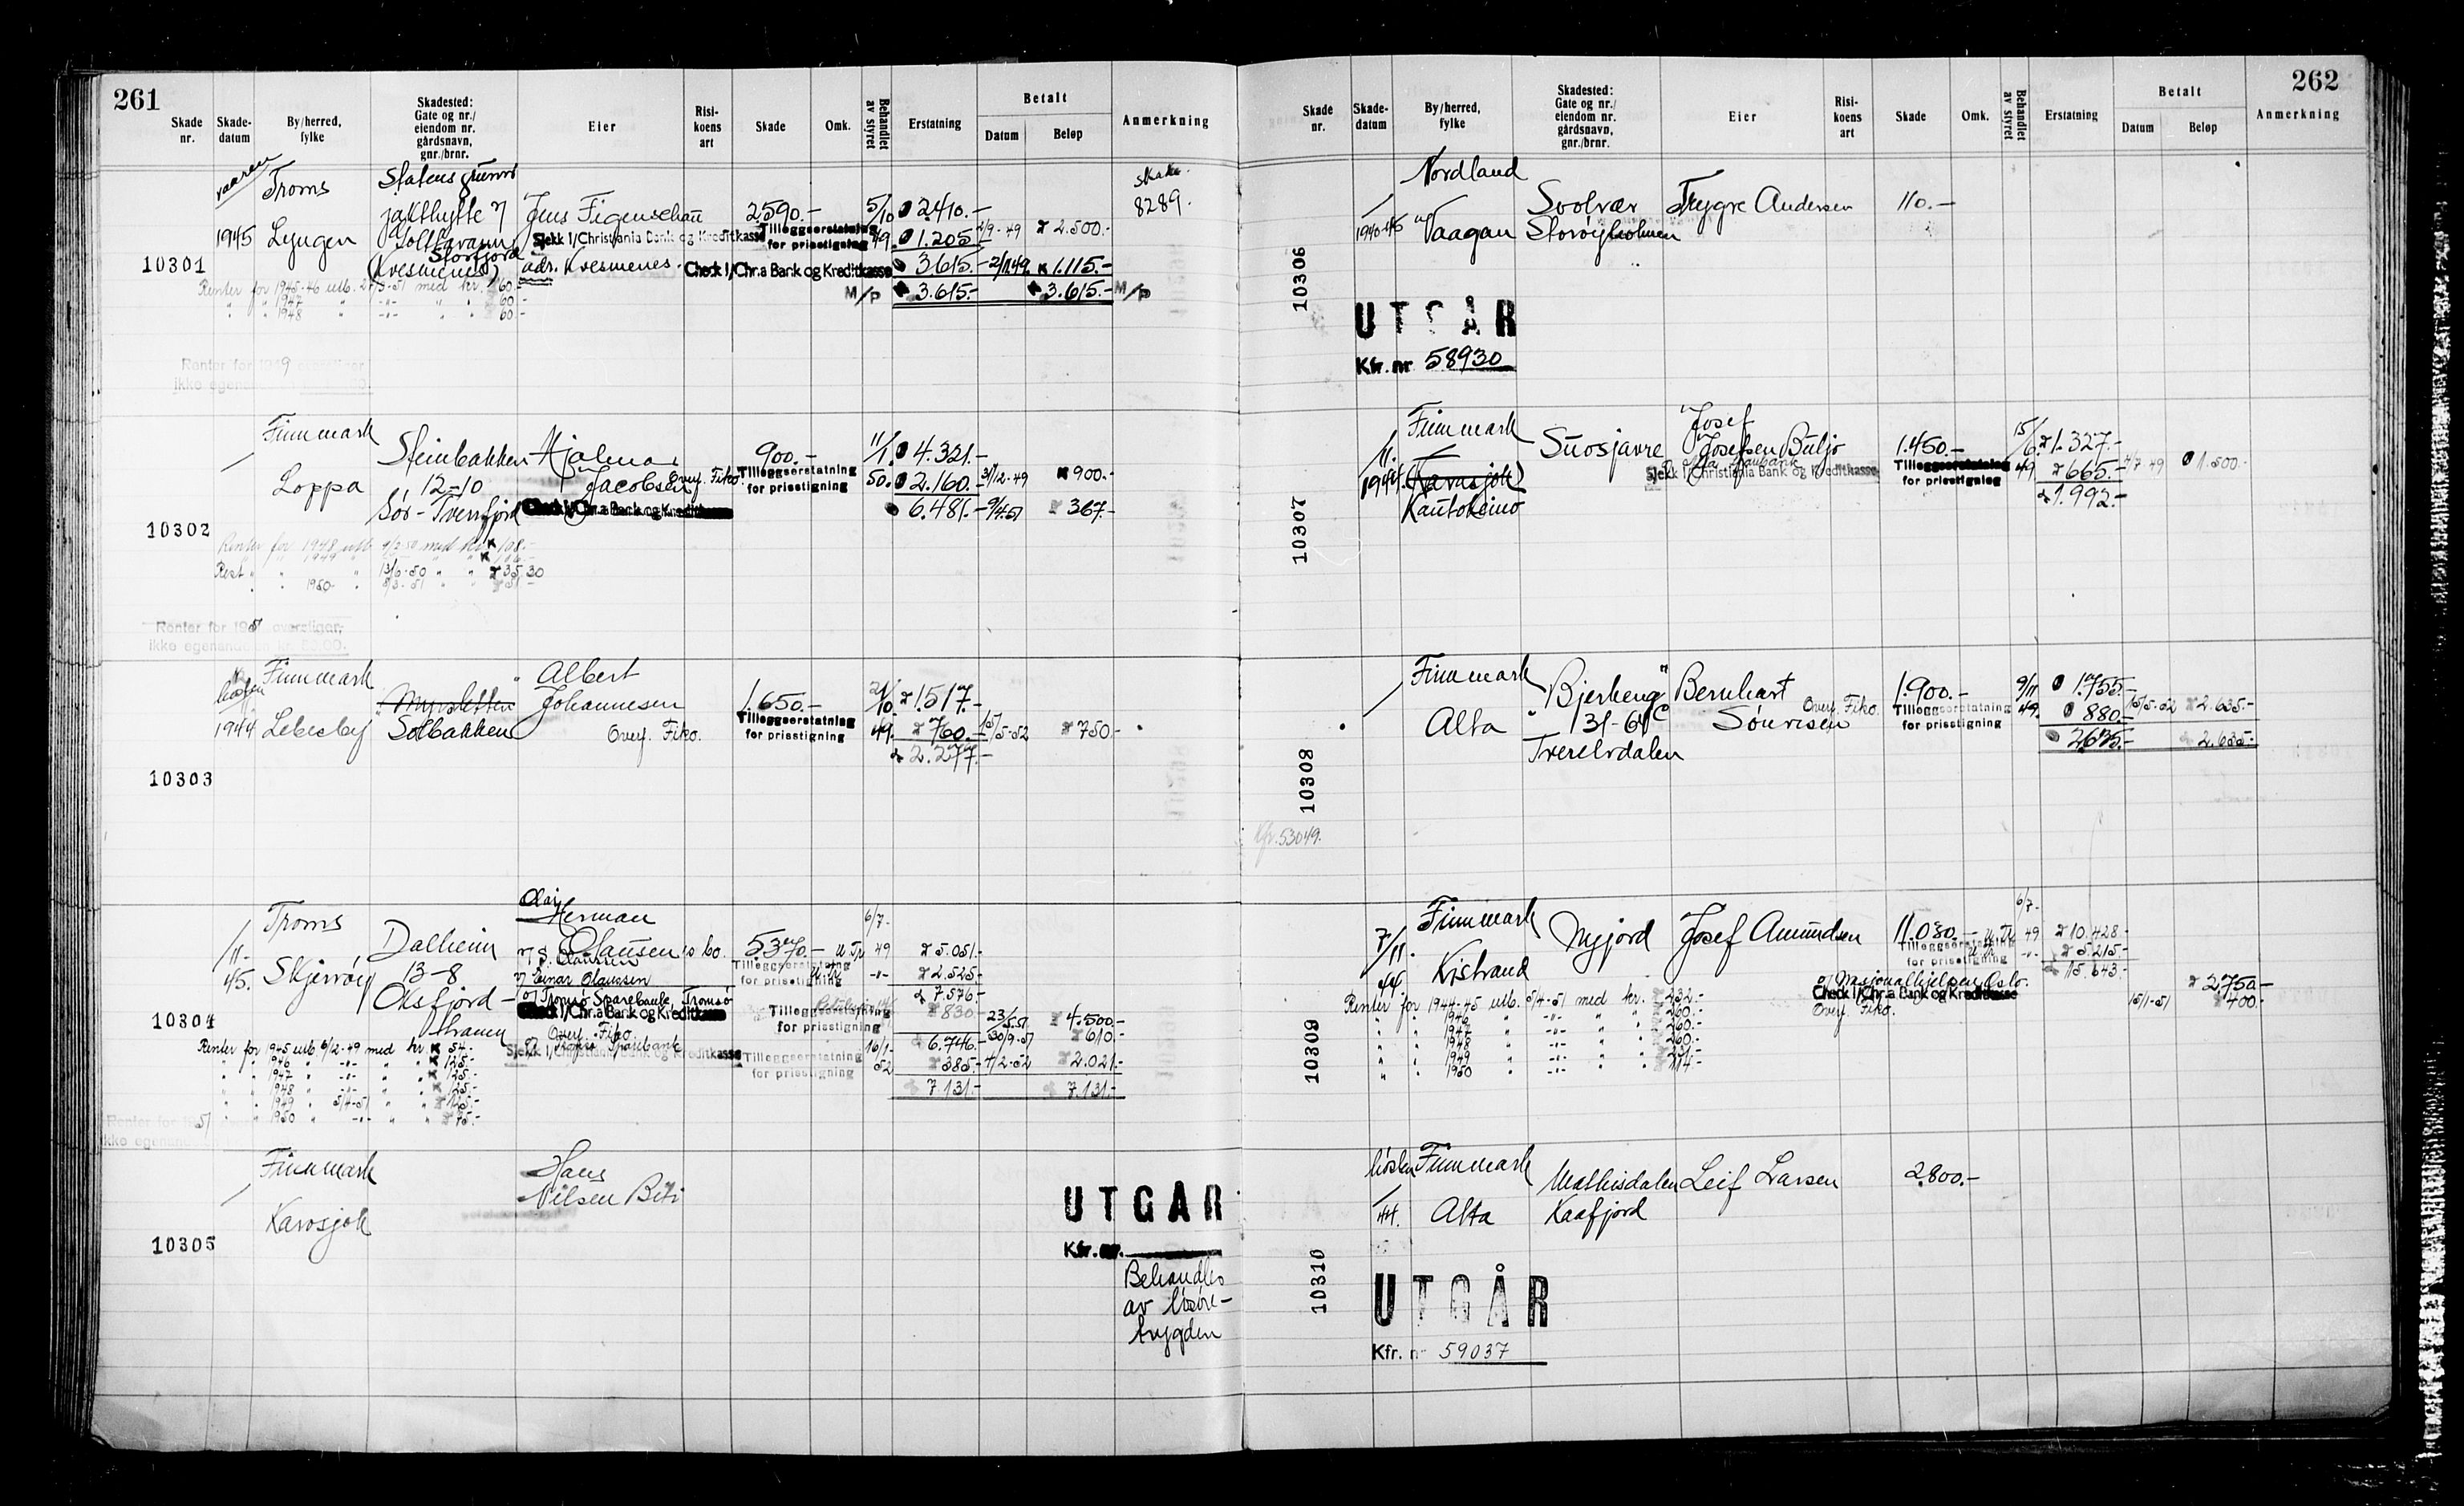 261
Skade nr.
Skade-datum
By/herred, fylke
Skadested: Gate og nr./ eiendom nr. gårdsnavn, gnr./brnr.
Eier
Risi-koens art
Skade
Omk.
Behandlet av styret
Erstatning
Betalt
Datum
Beløp
Anmerkning
10301
vaaren
1945
Troms
Lyngen
Statens grunn
jakthytte v/
(Kvesmenes)
Storfjord
Jens Figenschau
Sjekk I/Christiania Bank og Kreditkasse
adr. Kvesmenes.
Check I/Chr.a Bank og Kreditkasse
2590.-
Tilleggserstatning
for prisstigning
5/10 49.
2.410.-
1.205.-
3615.-
M/P 3.615.-
2/9-49 2.500.-
2/11.49. 1.115.-
3.615.- M/P
Skade
8289.
Renter for 1945-46 utb. 27/3-51 med kr. 60.-
" " 1947 " -"- " " 60.-
" " 1948 " -"- " " 60.-
Renter for 1949 overstiger
ikke egenandelen
10302
Finnmark
Loppa
Steinbakken
12-10
Sør-Tverrfjord
Hjalmar
Jacobsen
Overf. Fiko.
Check I/Chr.a Bank og Kreditkasse
900.-
Tilleggserstatning
for prisstigning
11/1 50.
4.321.-
2.160.-
6.481.-
3/12-49 900.-
9/4-51 367.-
Renter for 1948 utb. 9/2 50 med kr. 108.-
" " 1949
Rest " " 13/6-50 " " 35.30
" " 1950 "
Renter for 1951 overstiger
ikke egenandelen
10303
høsten
1944
Finnmark
Lebesby
Myrsletten
Solbakken
Albert
Johannesen
Overf. Fiko.
1.650.-
Tilleggserstatning
for prisstigning
21/10 49.
1.517.-
760.-
2.277.-
15/5-52 750.-
10304
11-45.
Troms
Skjervøy
Dalheim
13-8
Oksfjord-
hamn
Olai
Herman
Olaussen's bo.
v/ S. Olaussen
v/ Einar Olaussen
v/ Tromsø Sparebank, Tromsø
Check I/Chr.a Bank og Kreditkasse
Overf. Fiko.
Sjekk I/Christiania Bank og Kreditkasse
5.370.-
Tilleggserstatning
for prisstigning
Tilleggserstatning
for prisstigning
Tilleggserstatning
for prisstigning
6/7-49
-"-
16/1-52
5.051.-
2.525.-
7.576.-
830.-
6.746.-
385.-
7.131.-
23/5-51 4.500.-
30/9-51 610.-
4/2-52 2.021.-
7.131.-
Renter for 1945 utb. 6/2-49 med kr. 54.-
" " 1946 " -"- " " 125.-
" " 1947 " -"- " " 125.-
" " 1948 " -"- " " 125.-
" " 1949 " 5/4-51 " " 125.-
" " 1950 " -"- " " 75.-
Renter for 1951
ikke egenandelen
10305
Finnmark
Karasjok
Hans
Nilsen Biti
UTGÅR
Kfr. nr.
Behandles
av løsøre-
bygden
262
Skade nr.
Skade-datum
By/herred, fylke
Skadested: Gate og nr./ eiendom nr. gårdsnavn, gnr./brnr.
Eier
Risi-koens art
Skade
Omk.
Behandlet av styret
Erstatning
Betalt
Datum
Beløp
Anmerkning
10306
1940-45
Nordland
Vaagan
Svolvær
Storøyholmen
Trygve Andersen
110.-
UTGÅR
Kfr. nr. 58930
10307
11.
1944.
Finnmark
(Karasjok)
Kautokeino
Suosjavre
Josef
Josefsen Buljo
Sjekk I/Christiania Bank og Kreditkasse
1.450.-
Tilleggserstatning
for prisstigning
15/6. 49
1.327.-
665.-
1.992.-
4/7-49 1.500.-
10308
Kfr. 53049.
Finnmark
Alta
"Bjerkeng"
131-64
Tverelvdalen
Bernhart
Sørensen
Overf. Fiko.
1.900.-
Tilleggserstatning
for prisstigning
9/11 49.
1.755.-
880.-
2.635.-
15/5-52 2.635.-
2.635.-
10309
7/11.
44.
Finnmark
Kistrand
Nyjord
Josef Amundsen
11.030.-
Tilleggserstatning
for prisstigning
v/ Nasjonalhjelpen, Oslo.
Check I/Chr.a Bank og Kreditkasse
Overf. Fiko.
6/7-49
-"-
10.428.-
5.215.-
15.643.-
2.750.-
15/1-51 400.-
Renter for 1944-45 utb. 5/4-51 med kr. 232.-
" " 1946 " -"- " " 260.-
" " 1947 " -"- " " 260.-
" " 1948 " -"- " " 260.-
" " 1949 " -"- " "
" " 1950 " -"- " " 214.-
10310
høsten
44.
Finnmark
Alta
Mathisdalen
Kaafjord
Leif Larsen
2.800.-
UTGÅR
Kfr. nr 59037